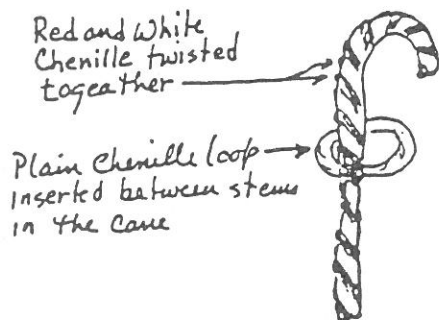 Red and White
Chenille twisted
togeather
Plain Chenille loop
inserted between stems
in the cane